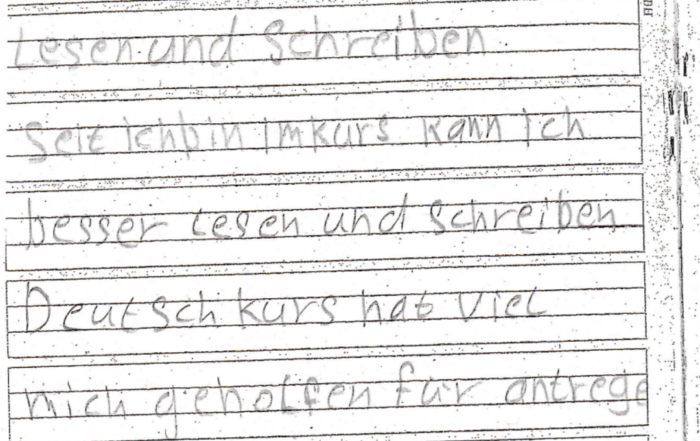 Lesen und Schreiben
Seit ich bin im kurs kann ich
besser lesen und schreiben
Deutsch kurs hat viel
mich geholfen für antrege